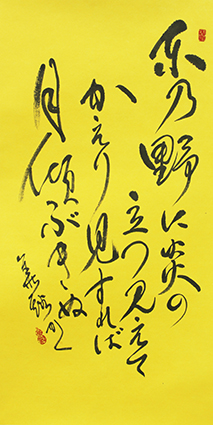 東乃野に炎の
立つ見えて
かえり見すれば
月傾ぶきぬ